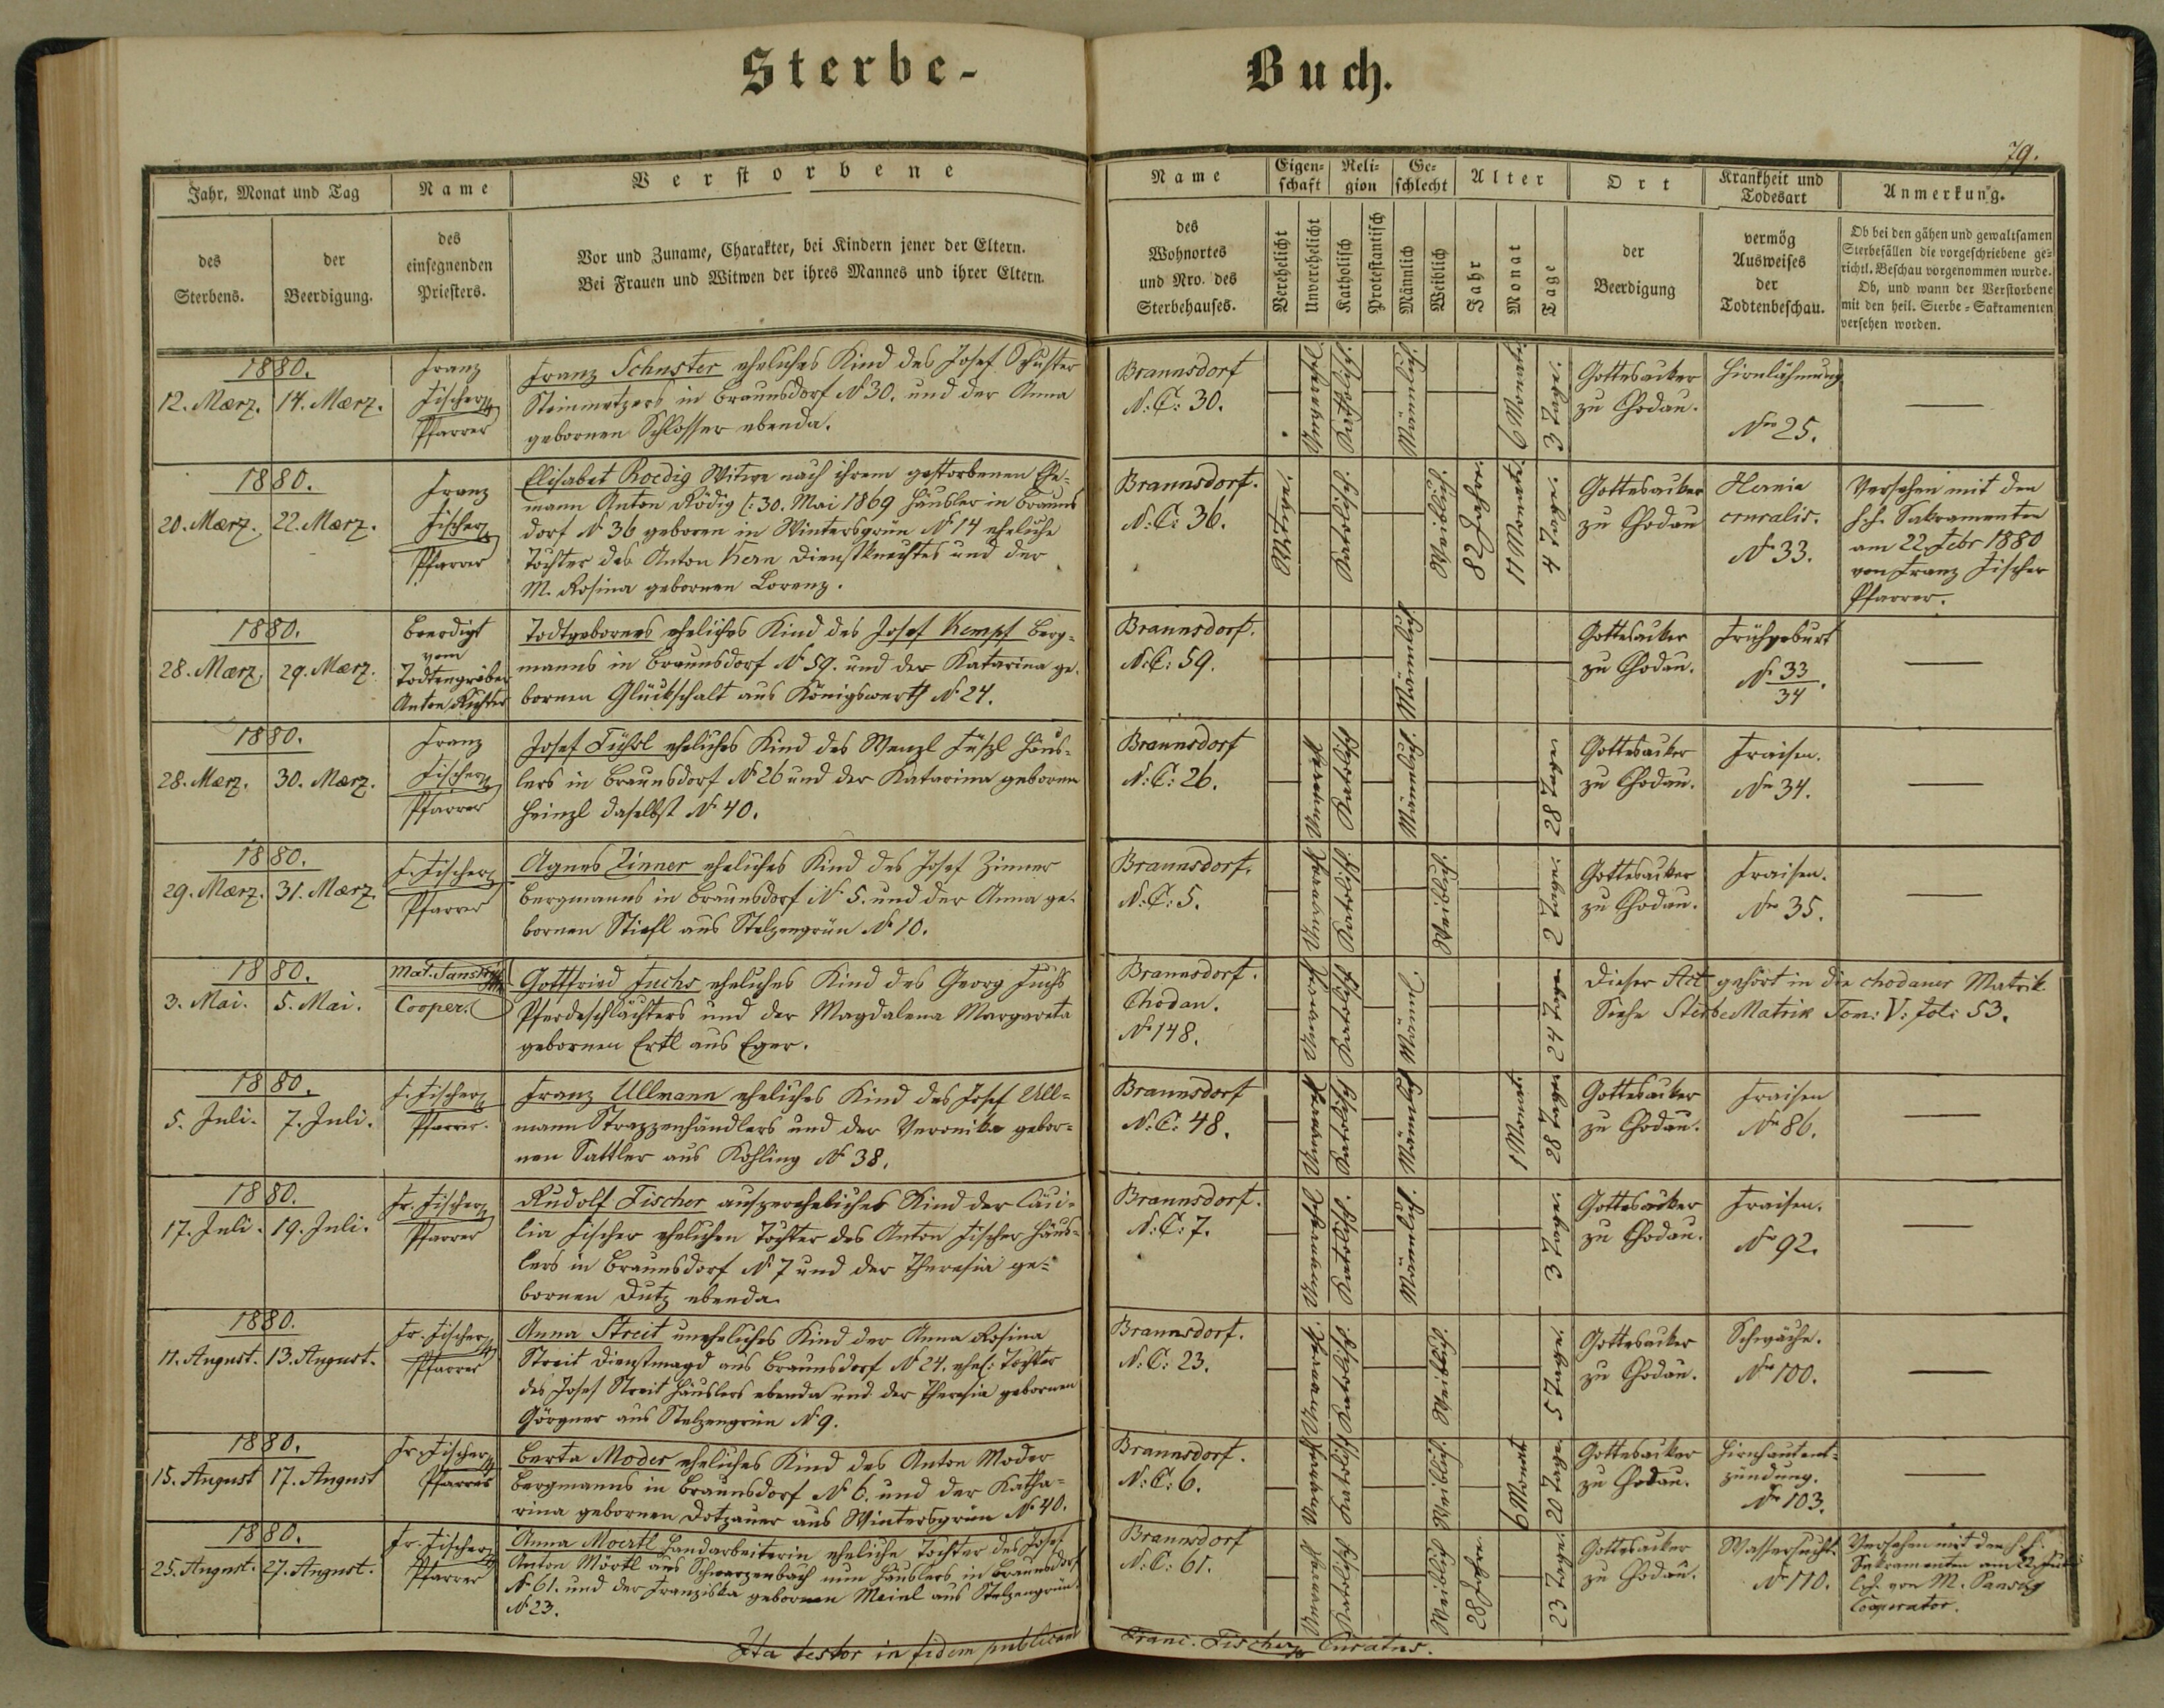 Sterbe-
Buch.
79.
Jahr, Monat und Tag
Name
Verstorbene
des Sterbens.
der Beerdigung.
des
einsegnenden
Priesters.
Vor und Zuname, Charakter, bei Kindern jener der Eltern.
Bei Frauen und Witwen der ihres Mannes und ihrer Eltern.
Name
Eigenschaft
Religion
Geschlecht
Alter
Ort
Krankheit und
Todesart
Anmerkung.
des
Wohnortes
und Nro. des
Sterbehauses.
Verehelicht
Unverehelicht
Katholisch
Protestantisch
Männlich
Weiblich
Jahr
Monat
Tage
der
Beerdigung
vermög
Ausweises
der
Todtenbeschau.
Ob bei den gähen und gewaltsamen
Sterbefällen die vorgeschriebene ge-
richtl. Beschau vorgenommen wurde.
Ob, und wann der Verstorbene
mit den heil. Sterbe-Sakramenten
versehen worden.
1880.
12. Mærz. 14. Mærz.
Franz
Fischer
Pfarrer
Franz Schuster eheliches Kind des Josef Schuster
Steinmetzers in Braunsdorf N 30. und der Anna
gebornen Schlosser ebenda.
Braunsdorf
N:C: 30.
Katholisch.
Männlich.
6 Monat.
3 Tage.
Gottesacker
zu Chodau.
Hirnlähmung
Nro 25.
1880.
20. Mærz. 22. Mærz.
Franz
Fischer
Pfarrer
Elisabet Roedig Witwe nach ihrem gestorbenen Ehe-
mann Anton Rödig (: 30. Mai 1869 Häusler in Brauns
dorf N 36 geboren in Wintersgrün N 14 eheliche
Tochter des Anton Kern Dienstknechtes und der
M. Rosina gebornen Lorenz.
Braunsdorf.
N:C: 36.
Witwe.
Katolisch.
Weiblich.
82 Jahre.
11 Monat.
4 Tage.
Gottesacker
zu Chodau
Hernia
cruralis.
Nr 33.
Versehen mit den
h.h. Sakramenten
am 22. Febr 1880
von Franz Fischer
Pfarrer.
1880.
28. Mærz. 29. Mærz.
Beerdigt
vom
Todtengräber
Anton Richter
Todtgebornes eheliches Kind des Josef Kempf Berg-
manns in Braunsdorf N 59. und der Katarina ge-
bornen Glückschalt aus Königswerth N 24.
Braunsdorf.
N:C: 59.
Männlich
Gottesacker
zu Chodau.
Frühgeburt
Nr 33/34.
1880.
28. Mærz. 30. Mærz.
Franz
Fischer
Pfarrer
Josef Füssl eheliches Kind des Wenzl Füssl Häus-
lers in Braunsdorf N 26 und der Katarina geboren
Heinzl daselbst N 40.
Braunsdorf
N:C: 26.
Katolisch
Männlich.
28 Tage
Gottesacker
zu Chodau.
Fraisen.
Nr 34.
1880.
29. Mærz. 31. Mærz.
F. Fischer
Pfarrer
Agnes Zinner eheliches Kind des Josef Zinner
Bergmanns in Braunsdorf N 5. und der Anna ge-
bornen Stiefl aus Stelzengrün N 10.
Braunsdorf.
N:C: 5.
Katolisch.
Weiblich.
2 Tage.
Gottesacker
zu Chodau.
Fraisen.
Nr 35.
1880.
3. Mai. 5. Mai.
Mat. Sansky
Cooper.
Gottfried Fuchs eheliches Kind des Georg Fuchs
Pferdeschlächters und der Magdalena Margareta
gebornen Ertl aus Eger.
Braunsdorf.
Chodau.
N 148.
Katolisch
Männl.
24 Tage
Dieser Act gehört in die chodauer Matrik
Siehe Sterbe Matrik Tom: V: fol: 53.
1880.
5. Juli. 7. Juli.
F. Fischer
Pfarrer.
Franz Ullmann eheliches Kind des Josef Ull-
mann Strazzenhändlers und der Veronika gebor-
nen Sattler aus Kohling N 38.
Braunsdorf
N:C: 48.
Katolisch
Männlich
1 Monat
28 Tage
Gottesacker
zu Chodau.
Fraisen
Nr 86.
1880.
17. Juli. 19. Juli.
Fr. Fischer
Pfarrer
Rudolf Fischer ausserehelicheß Kind der Cäci-
lia Fischer ehelichen Tochter des Anton Fischer Häus-
lers in Braunsdorf N 7 und der Theresia ge-
bornen Dutz ebenda
Braunsdorf.
N:C: 7.
Katolisch.
Männlich.
3 Tage.
Gottesacker
zu Chodau.
Fraisen.
Nr 92.
1880.
11. August. 13. August.
Fr. Fischer
Pfarrer
Anna Streit uneheliches Kind der Anna Rosina
Streit Dienstmagd aus Braunsdorf N 24. ehel: Tochter
des Josef Streit Häuslers ebenda und der Theresia gebornen
Görgner aus Stelzengrün N 9.
Braunsdorf.
N:C: 23.
Katolisch.
Weiblich.
5 Tage.
Gottesacker
zu Chodau.
Schwäche.
Nr 100.
1880.
15. August 17. August
Fr. Fischer
Pfarrer
Berta Moder eheliches Kind des Anton Moder
Bergmanns in Braunsdorf N 6. und der Katha-
rina gebornen Dotzauer aus Wintersgrün N 40.
Braunsdorf.
N:C: 6.
Katolisch
Weiblich.
6 Monat
20 Tage.
Gottesacker
zu Chodau.
Hirnhautent-
zündung.
Nr 103.
1880.
25. August. 27. August.
Fr. Fischer
Pfarrer
Anna Moertl Handarbeiterin eheliche Tochter des Josef
Anton Mörtl aus Schwarzenbach nun Häuslers in Braunsdorf
N 61. und der Franziska gebornen Meinl aus Stelzengrün
N 23.
Braunsdorf
N:C: 61.
Katolisch
Weiblich
28 Jahre.
23 Tage.
Gottesacker
zu Chodau.
Wassersucht.
Nr 110.
Versehen mit den h.h.
Sakramenten am
von M. Sansky
Cooperator.
Ita testor in fidem publicam
Franc. Fischer Curatus.